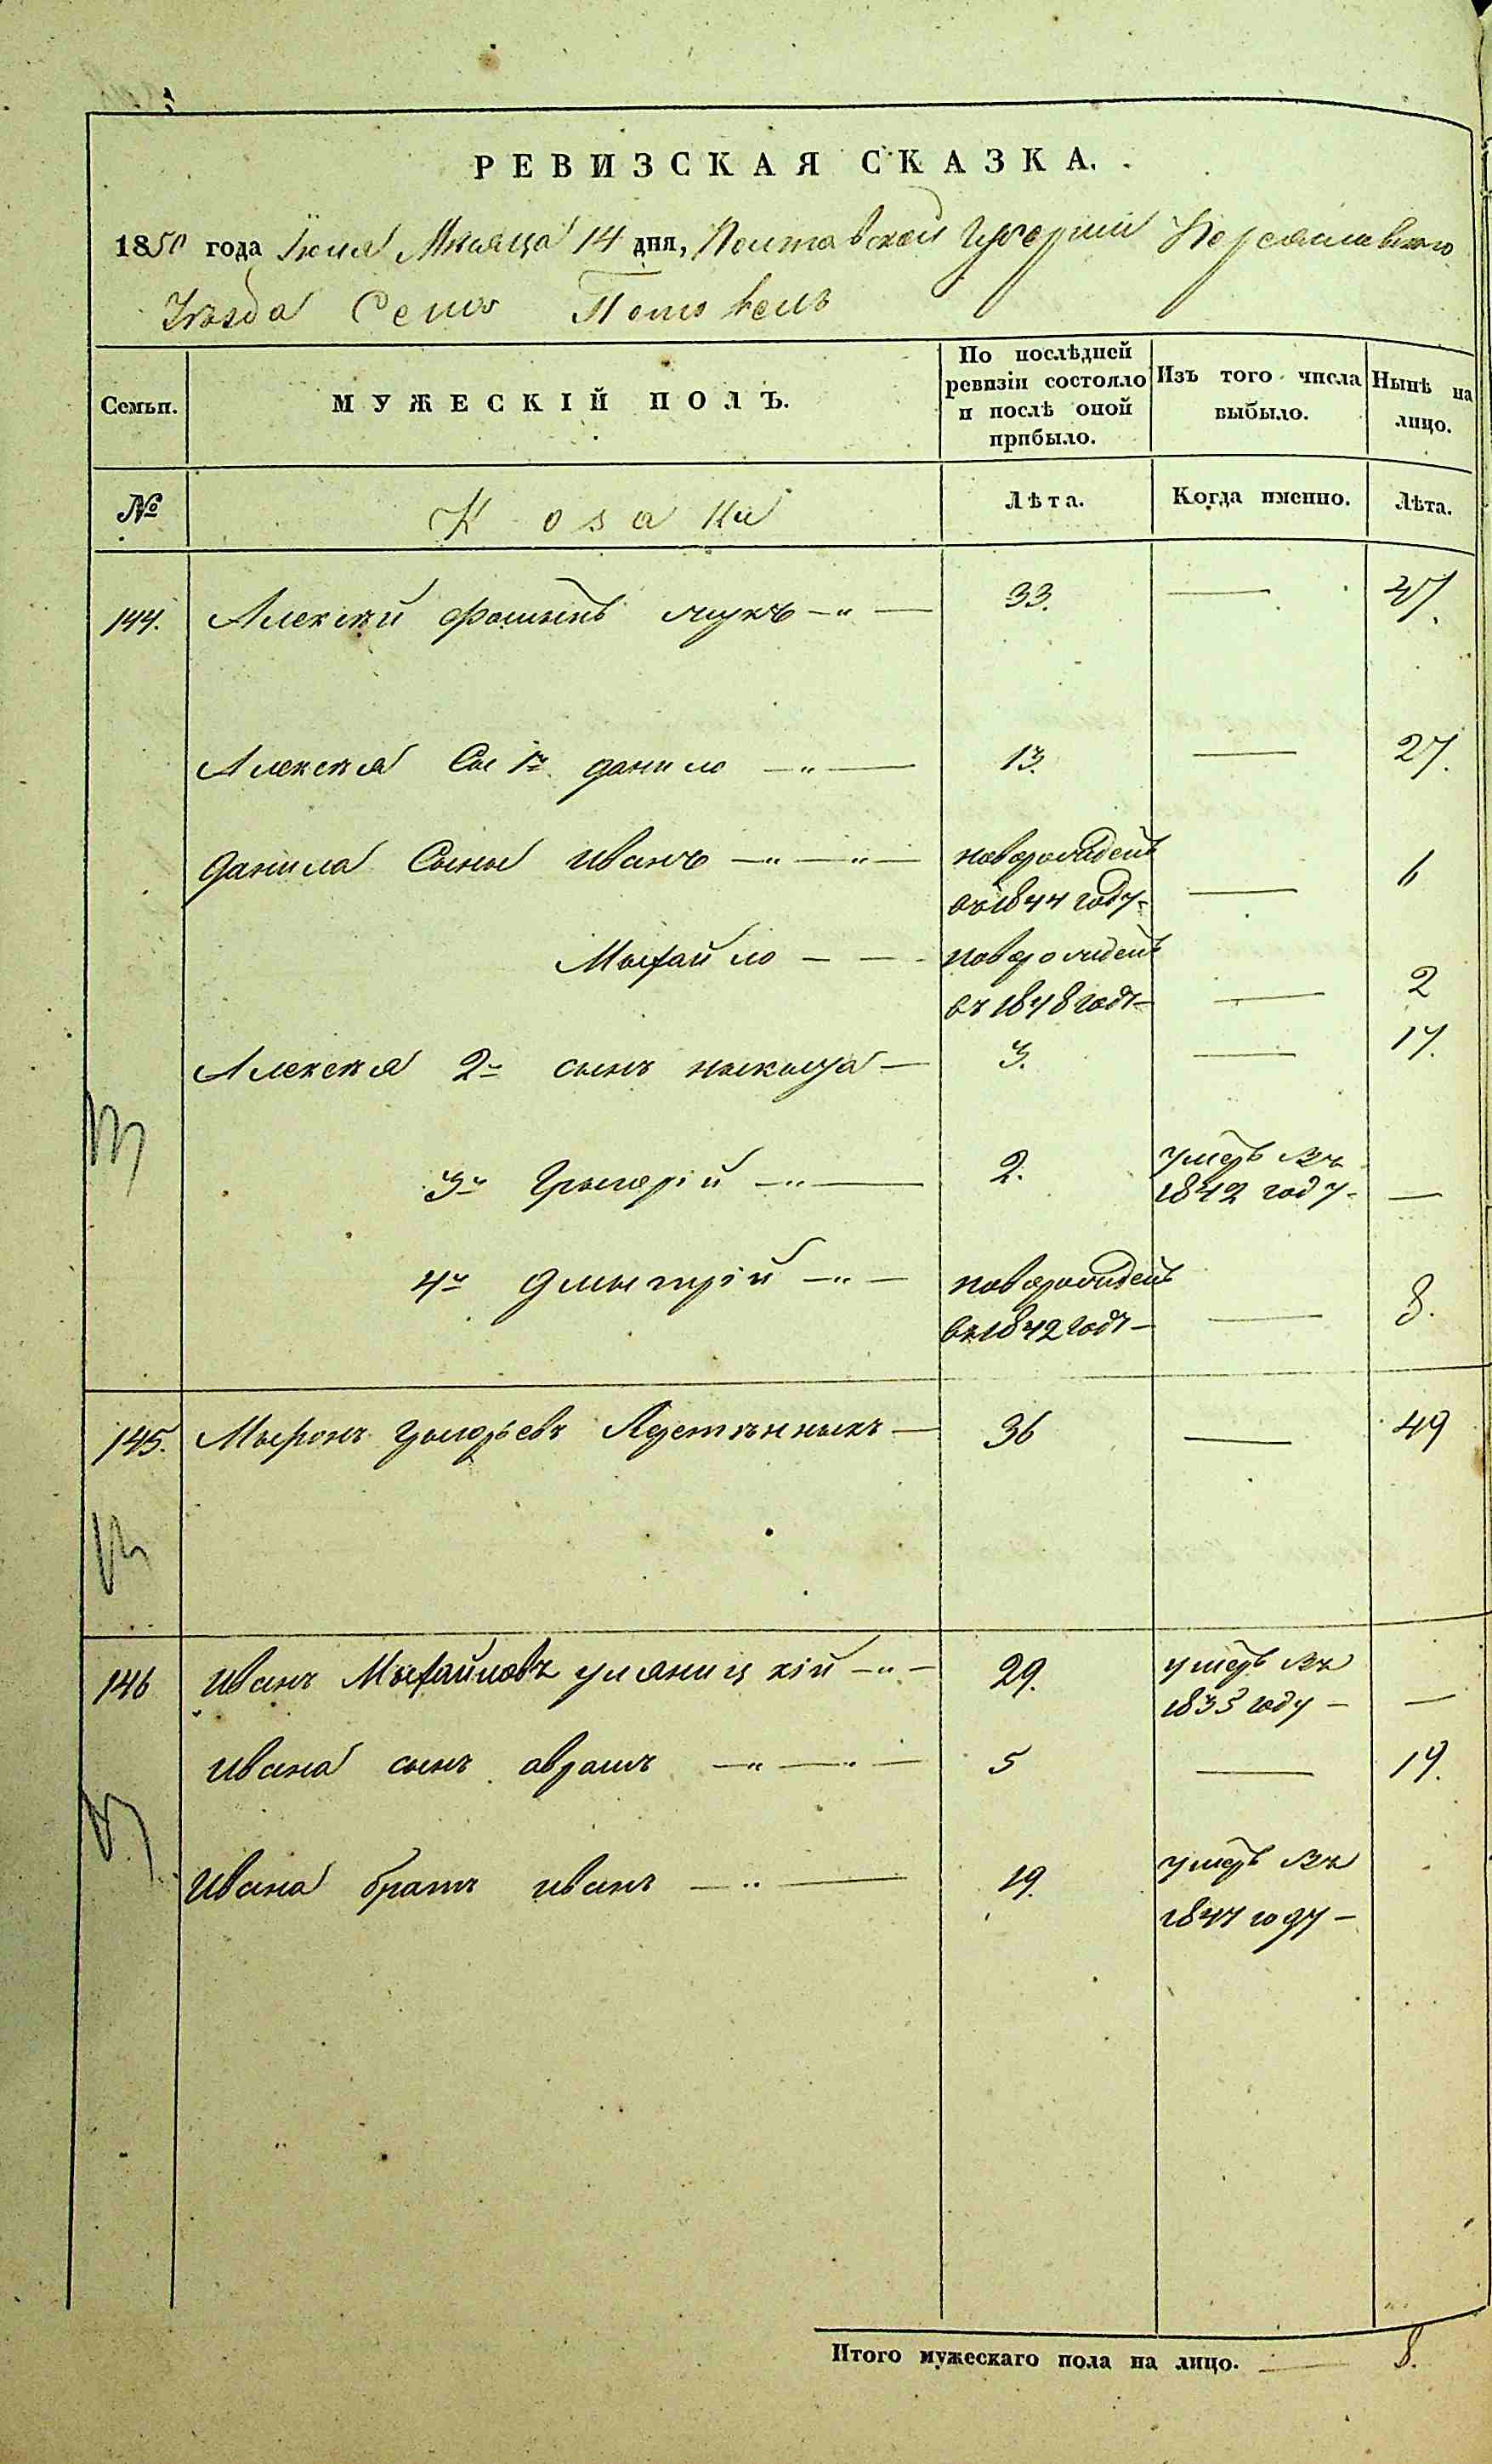 РЕВИЗСКАЯ СКАЗКА.
1850 года Іюня Мѣсяца 14 дня, Полтавской Губерніи Переяславского
Уѣзда Село Поповецъ
Семьи. МУЖЕСКІЙ ПОЛЪ. По послѣдней ревизіи состояло и послѣ оной прибыло. Изъ того числа выбыло. Нынѣ на лицо.
№ Козаки Лѣта. Когда именно. Лѣта.
144. Алексѣй Фоминъ 33. — 47.
Алексѣя Сы 1й данило — „ — 13. — 27.
данила Сыны иванъ — „ — „ — новорожденъ
въ 1844 году — — 6
Мыхайло — — новорожденъ
въ 1848 годъ — — 2
Алексѣя 2й сынъ ныкыта — 3. — 17.
3й Грыгорій — „ — 2. умеръ въ
1842 году — —
4й дмытрій — „ — новорожденъ
въ 1842 годъ — — 8.
145. Мыронъ Грыгорьевъ — 36 — 49
146 иванъ Мыхайловъ уляницкій — „ — 29. умеръ въ
1835 году — —
ивана сынъ аврамъ — „ — „ — 5 — 19.
ивана братъ иванъ — „ — 19. умеръ въ
1847 году —
Итого мужескаго пола на лицо. — 8.